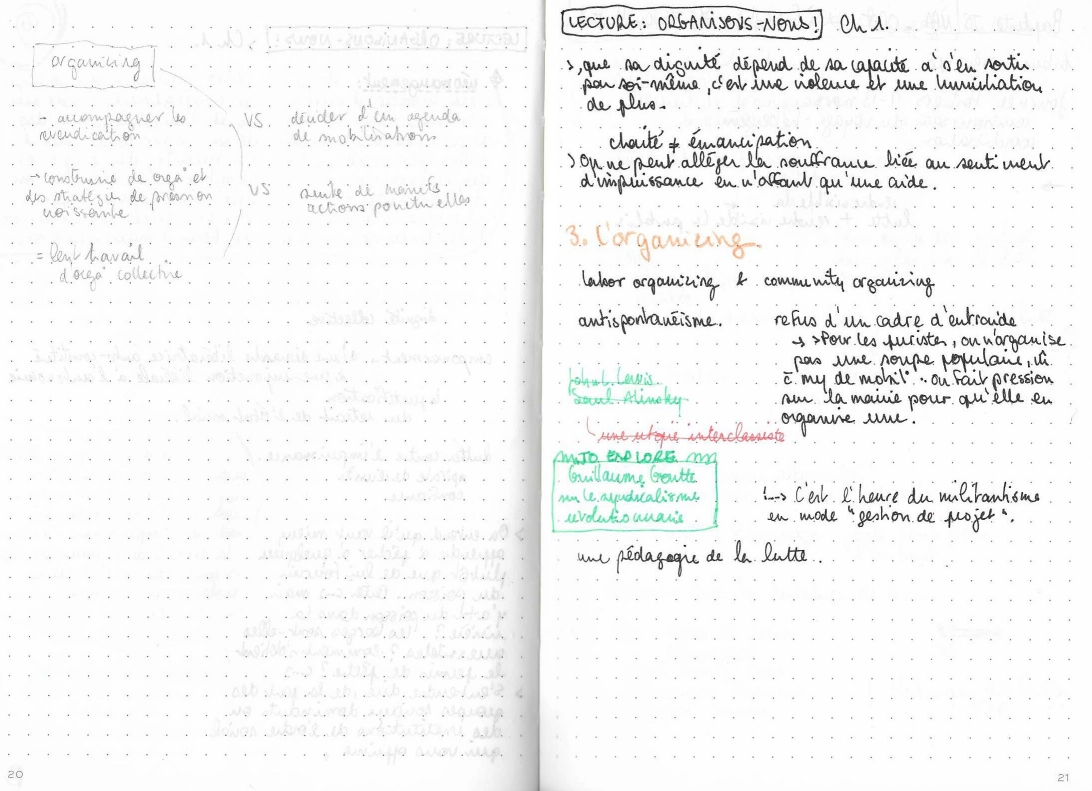 organizing
- accompagner les
revendication
VS
décider d'un agenda
de mobilisations
→ construire de orga° et
des stratégies de pression
croissante
VS
suite de
actions ponctuelles
= lent travail
d'orga° collective
20
LECTURE: ORGANISONS-NOUS! Ch 1.
>, que sa dignité dépend de sa capacité à s'en sortir
par soi-même, c'est une violence et une humiliation
de plus.
charité ≠ émancipation
> On ne peut alléger la souffrance liée au sentiment
d'impuissance en n'offrant qu'une aide.
3. L'organizing.
labor organizing & community organizing
antispontanéisme.
refus d'un cadre d'entraide
→ >Pour les puristes, on n'organise
pas une soupe populaire,
de mobil° : on fait pression
sur la mairie pour qu'elle en
organise une.
John L. Lewis
Saul Alinsky
une utopie interclassiste
TO EXPLORE
Guillaume Goutte
sur le syndicalisme
révolutionnaire
!--> C'est l'heure du militantisme
en mode "gestion de projet".
une pédagogie de la lutte..
21